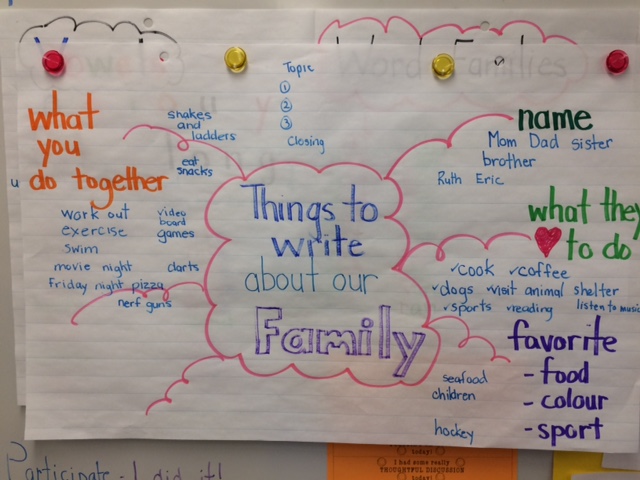 Word Families
Topic
①
②
③
Closing
what
you
do together
shakes
and
ladders
eat
snacks
work out
exercise
swim
video
board
games
movie night
darts
Friday night pizza
nerf guns
Things to
write
about our
Family
name
Mom Dad sister
brother
Ruth Eric
what they
♥ to do
✓cook ✓coffee
✓dogs ✓visit animal shelter
✓sports ✓reading listen to music
favorite
- food
- colour
- sport
seafood
children
hockey
Participate - I did it!
today!
I had some really
THOUGHTFUL DISCUSSION
today!